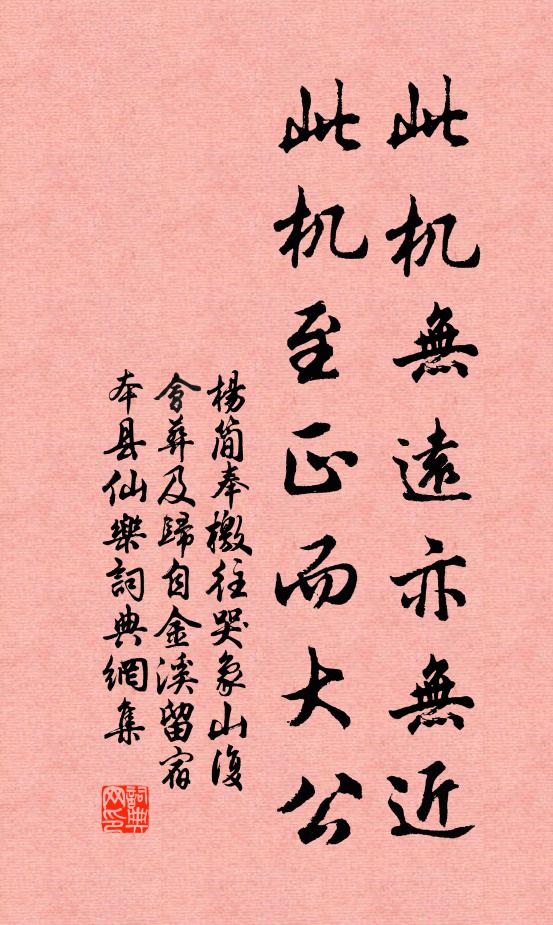 此机無遠亦無近
此机至正而大公
楊简奉檄往哭象山復
會葬及歸自金溪留宿
本县仙樂詞典網集
詞典网印